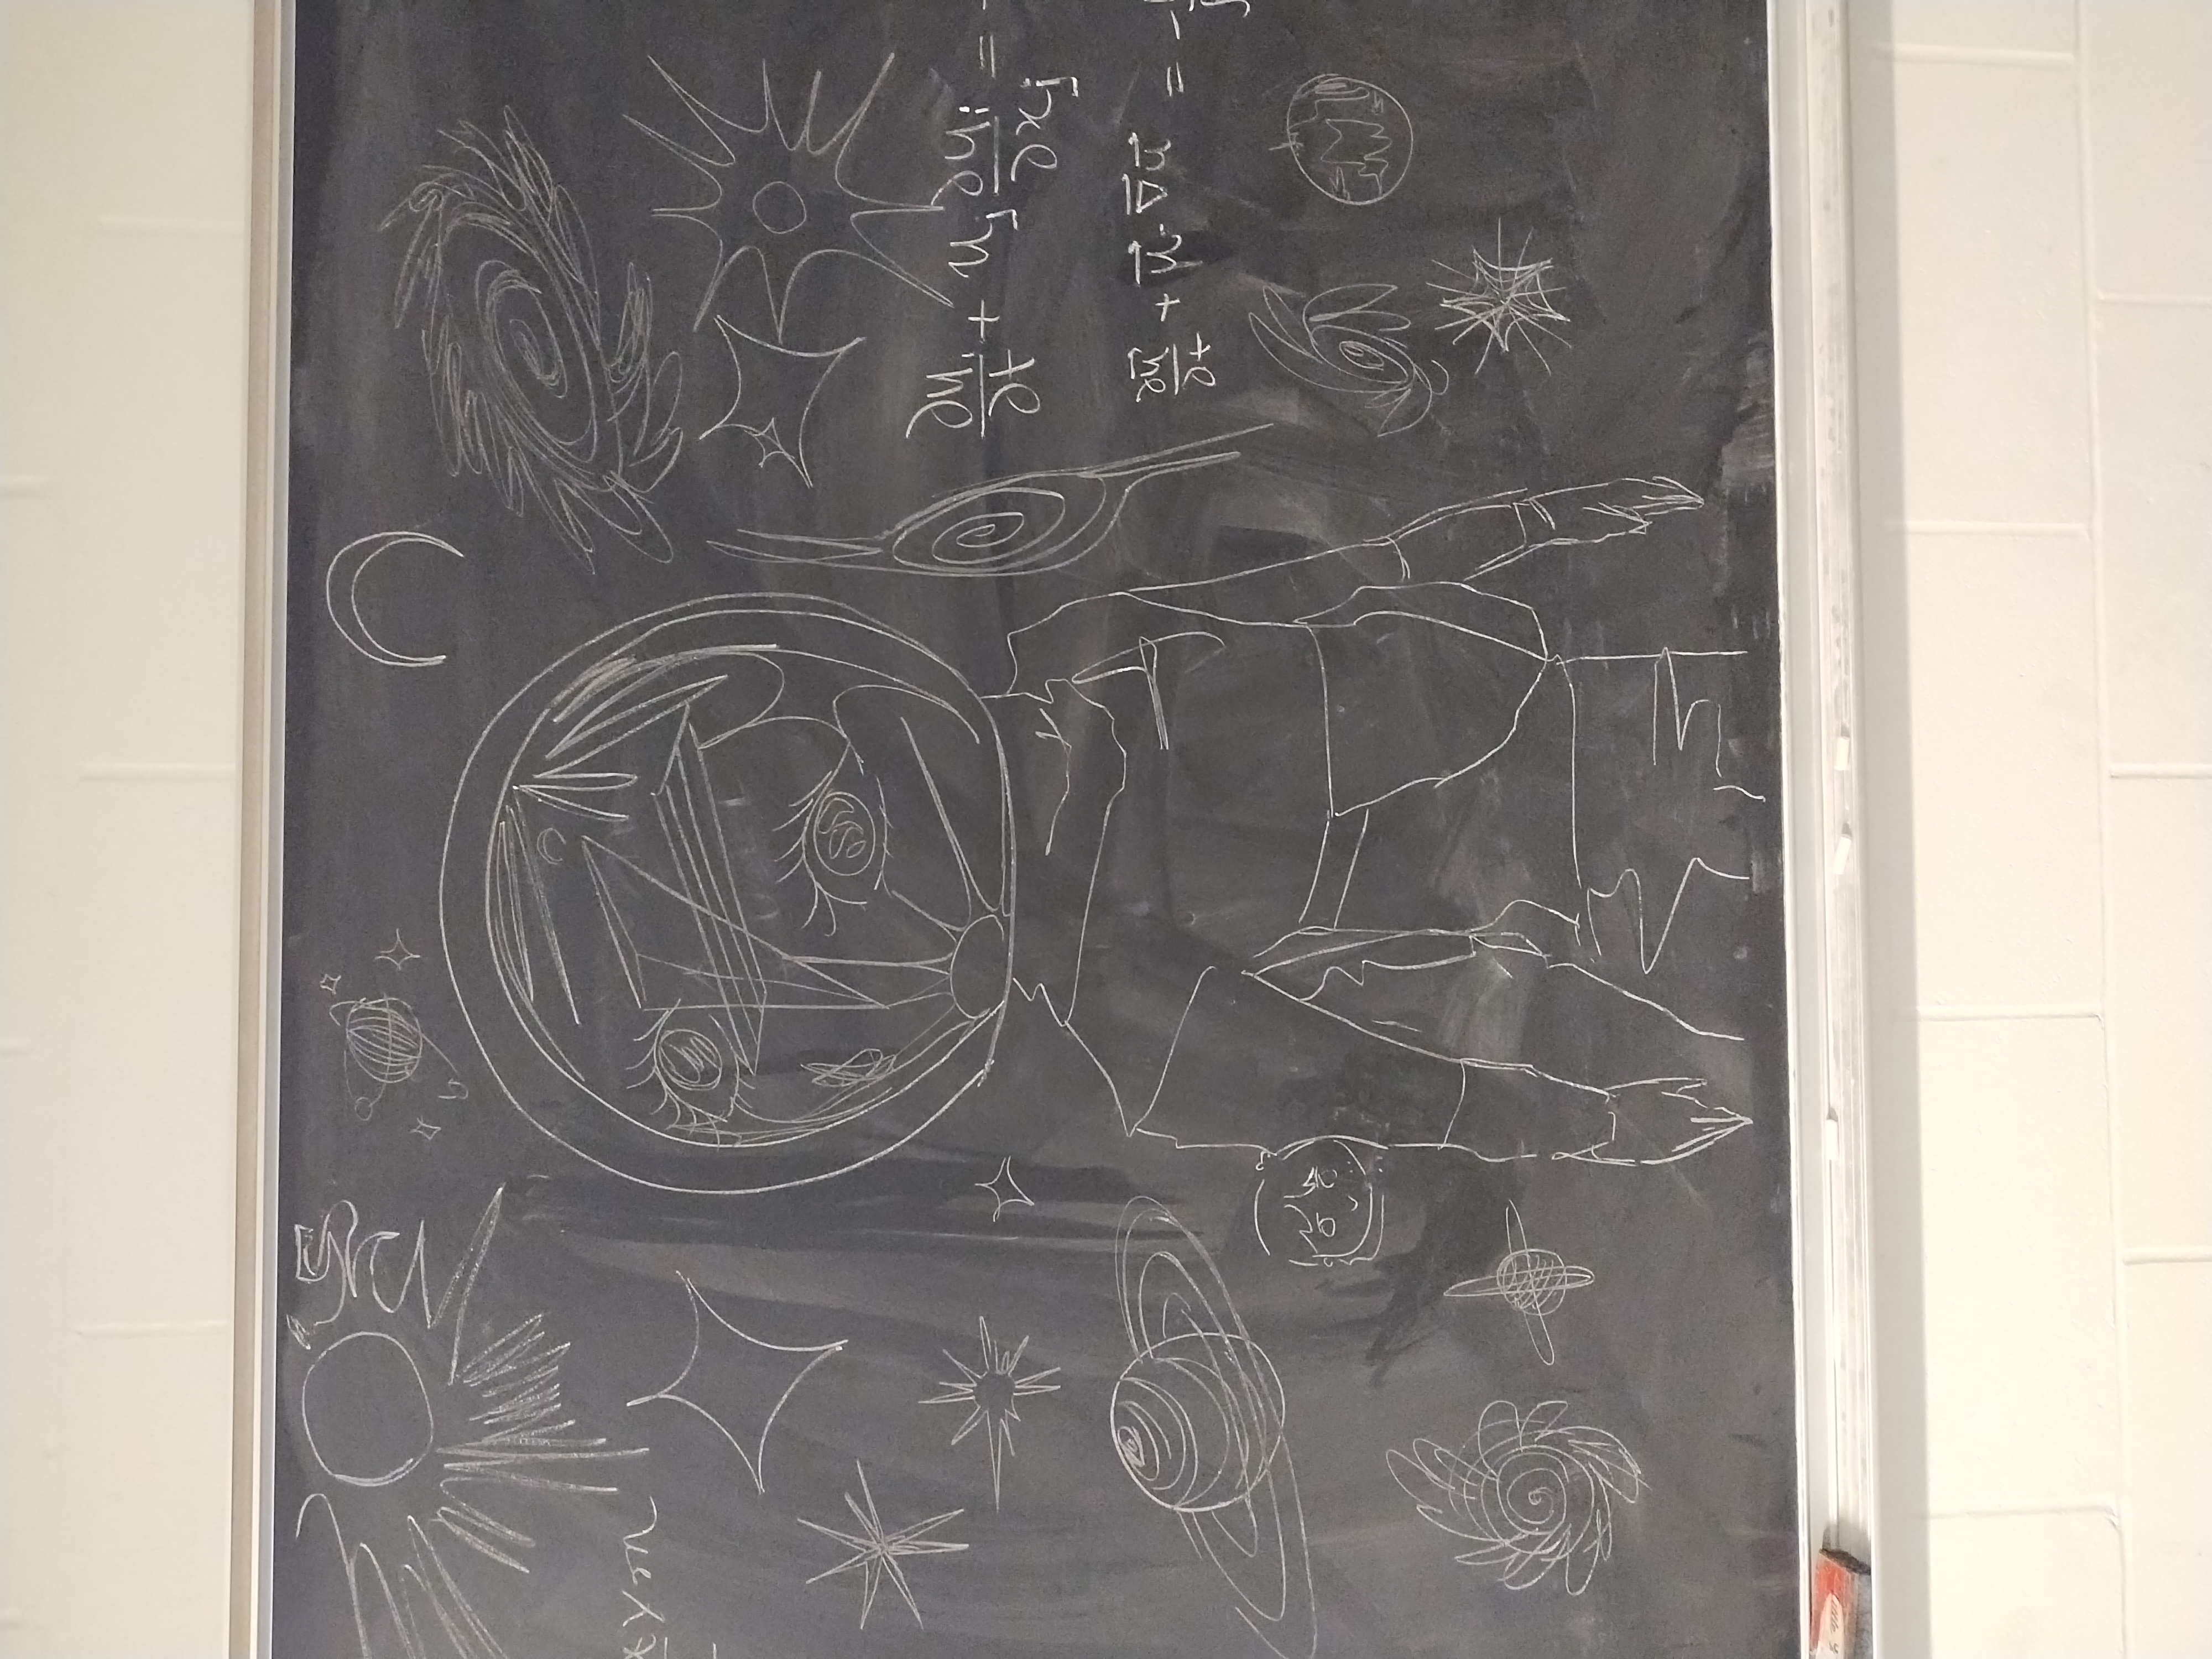 ∂uᵢ/∂t + uⱼ ∂uᵢ/∂xⱼ = -
∂u⃗/∂t + u⃗·∇⃗u⃗ = -